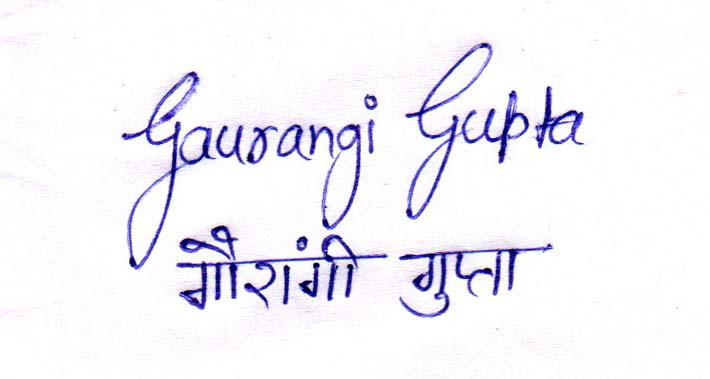 Gaurangi Gupta
गौरांगी गुप्ता